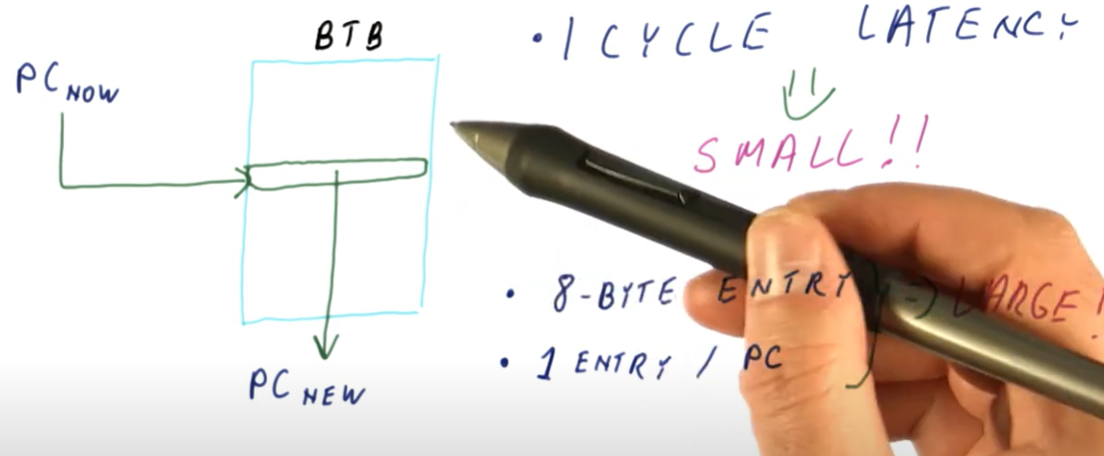 BTB
PC NOW
PC NEW
• 1 CYCLE LATENCY
⇓
SMALL!!
• 8-BYTE ENTRY
• 1 ENTRY / PC
} ⇒ LARGE!